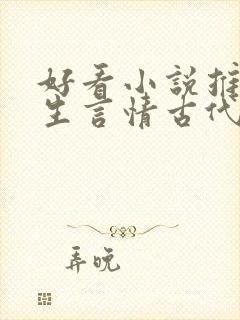 好看小说推
生言情古代
弄晚